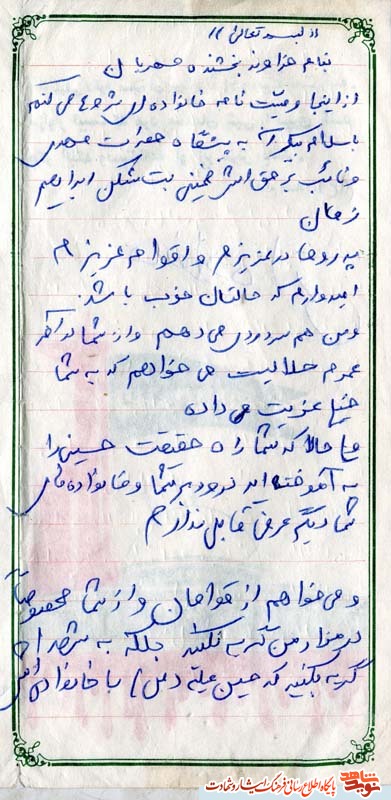 «بسمه تعالی»
بنام خداوند بخشنده مهربان
از اینجا وصیت نامه خانوادگی شروع می کنم
با سلام بیکران به پیشگاه حضرت مهدی
و نائب بر حقش خمینی بت شکن ابراهیم
زمان
پدر و مادر عزیزم و اقوام عزیزم
امیدوارم که حالتان خوب باشد.
و من هم سر دردی می دهم و از شما تا آخر
عمرم حلالیت می خواهم که به شما
خیلی عذیت می داده
حالا که شما راه حقیقت حسینی را
به آموخته اید درود بر شما و خانواده های
شما دیگر عرض قابلی ندارم
و می خواهم از قوامان و از شما مخصوصاً
در مزار من گریه نکنید بلکه به شهدا
گریه بکنید که حسین علیه (س) با خانواده اش
پایگاه اطلاع رسانی فرهنگ ایثار و شهادت
نوید شاهد